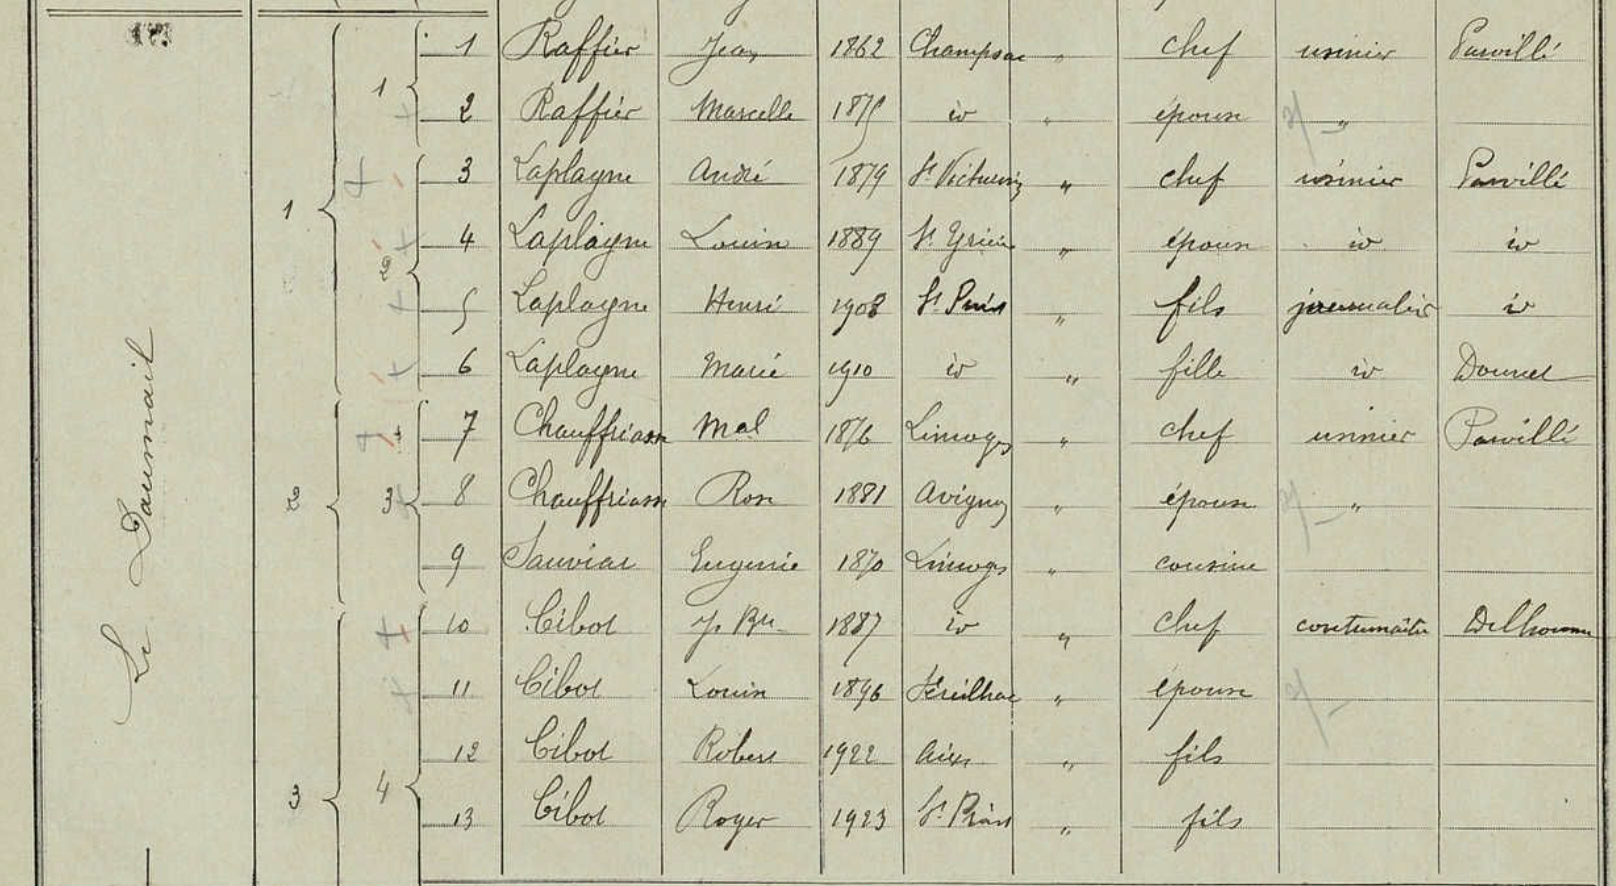 1 Raffier Jean 1862 Champsac " chef usinier Parvillé
1 2 Raffier Marcelle 1875 id " épouse "
3 Laplagne André 1879 St Victurnien " chef usinier Parvillé
1 4 Laplagne Louise 1889 St Yrieix " épouse id id
2 5 Laplagne Henri 1908 St Priest " fils journalier id
6 Laplagne Marie 1910 id " fille id Dournet
7 Chauffriasse Mal 1876 Limoges " chef usinier Parvillé
2 3 8 Chauffriasse Rose 1881 Avignon " épouse "
9 Sauviat Eugenie 1870 Limoges " cousine
10 Cibot J. Bte 1887 id " chef contremaître Delhomme
11 Cibot Louise 1896 Séreilhac " épouse
12 Cibot Robert 1922 Aixe " fils
3 4 13 Cibot Roger 1923 St Priest " fils
Le Daumail